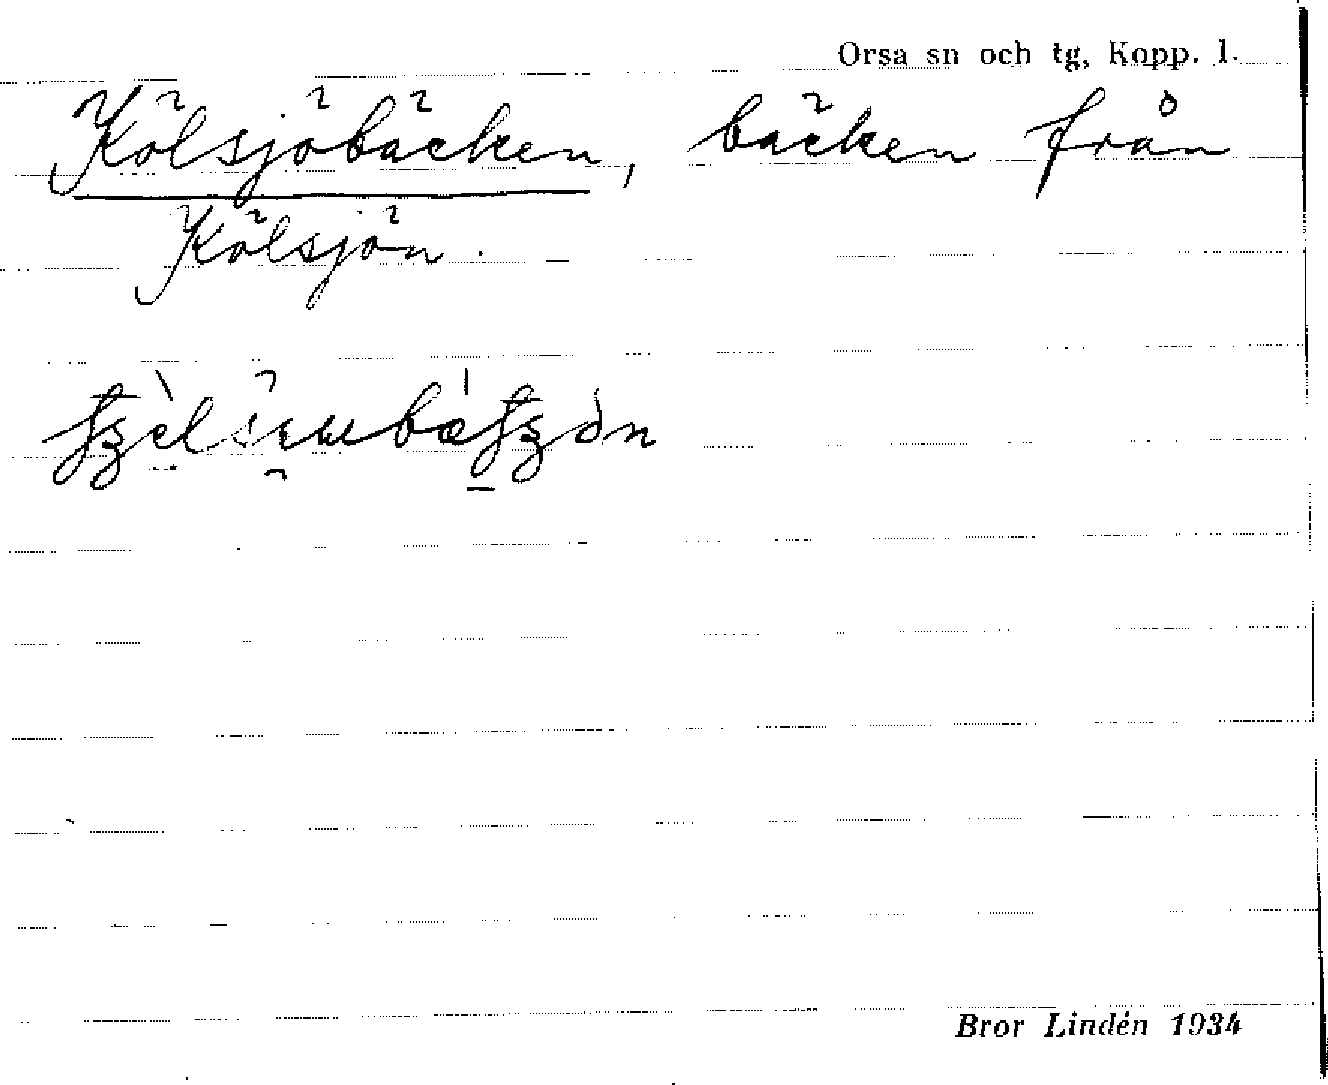 Orsa sn och tg, Kopp. l.
Kölsjöbäcken, bäcken från
Kölsjön.
Bror Lindén 1934